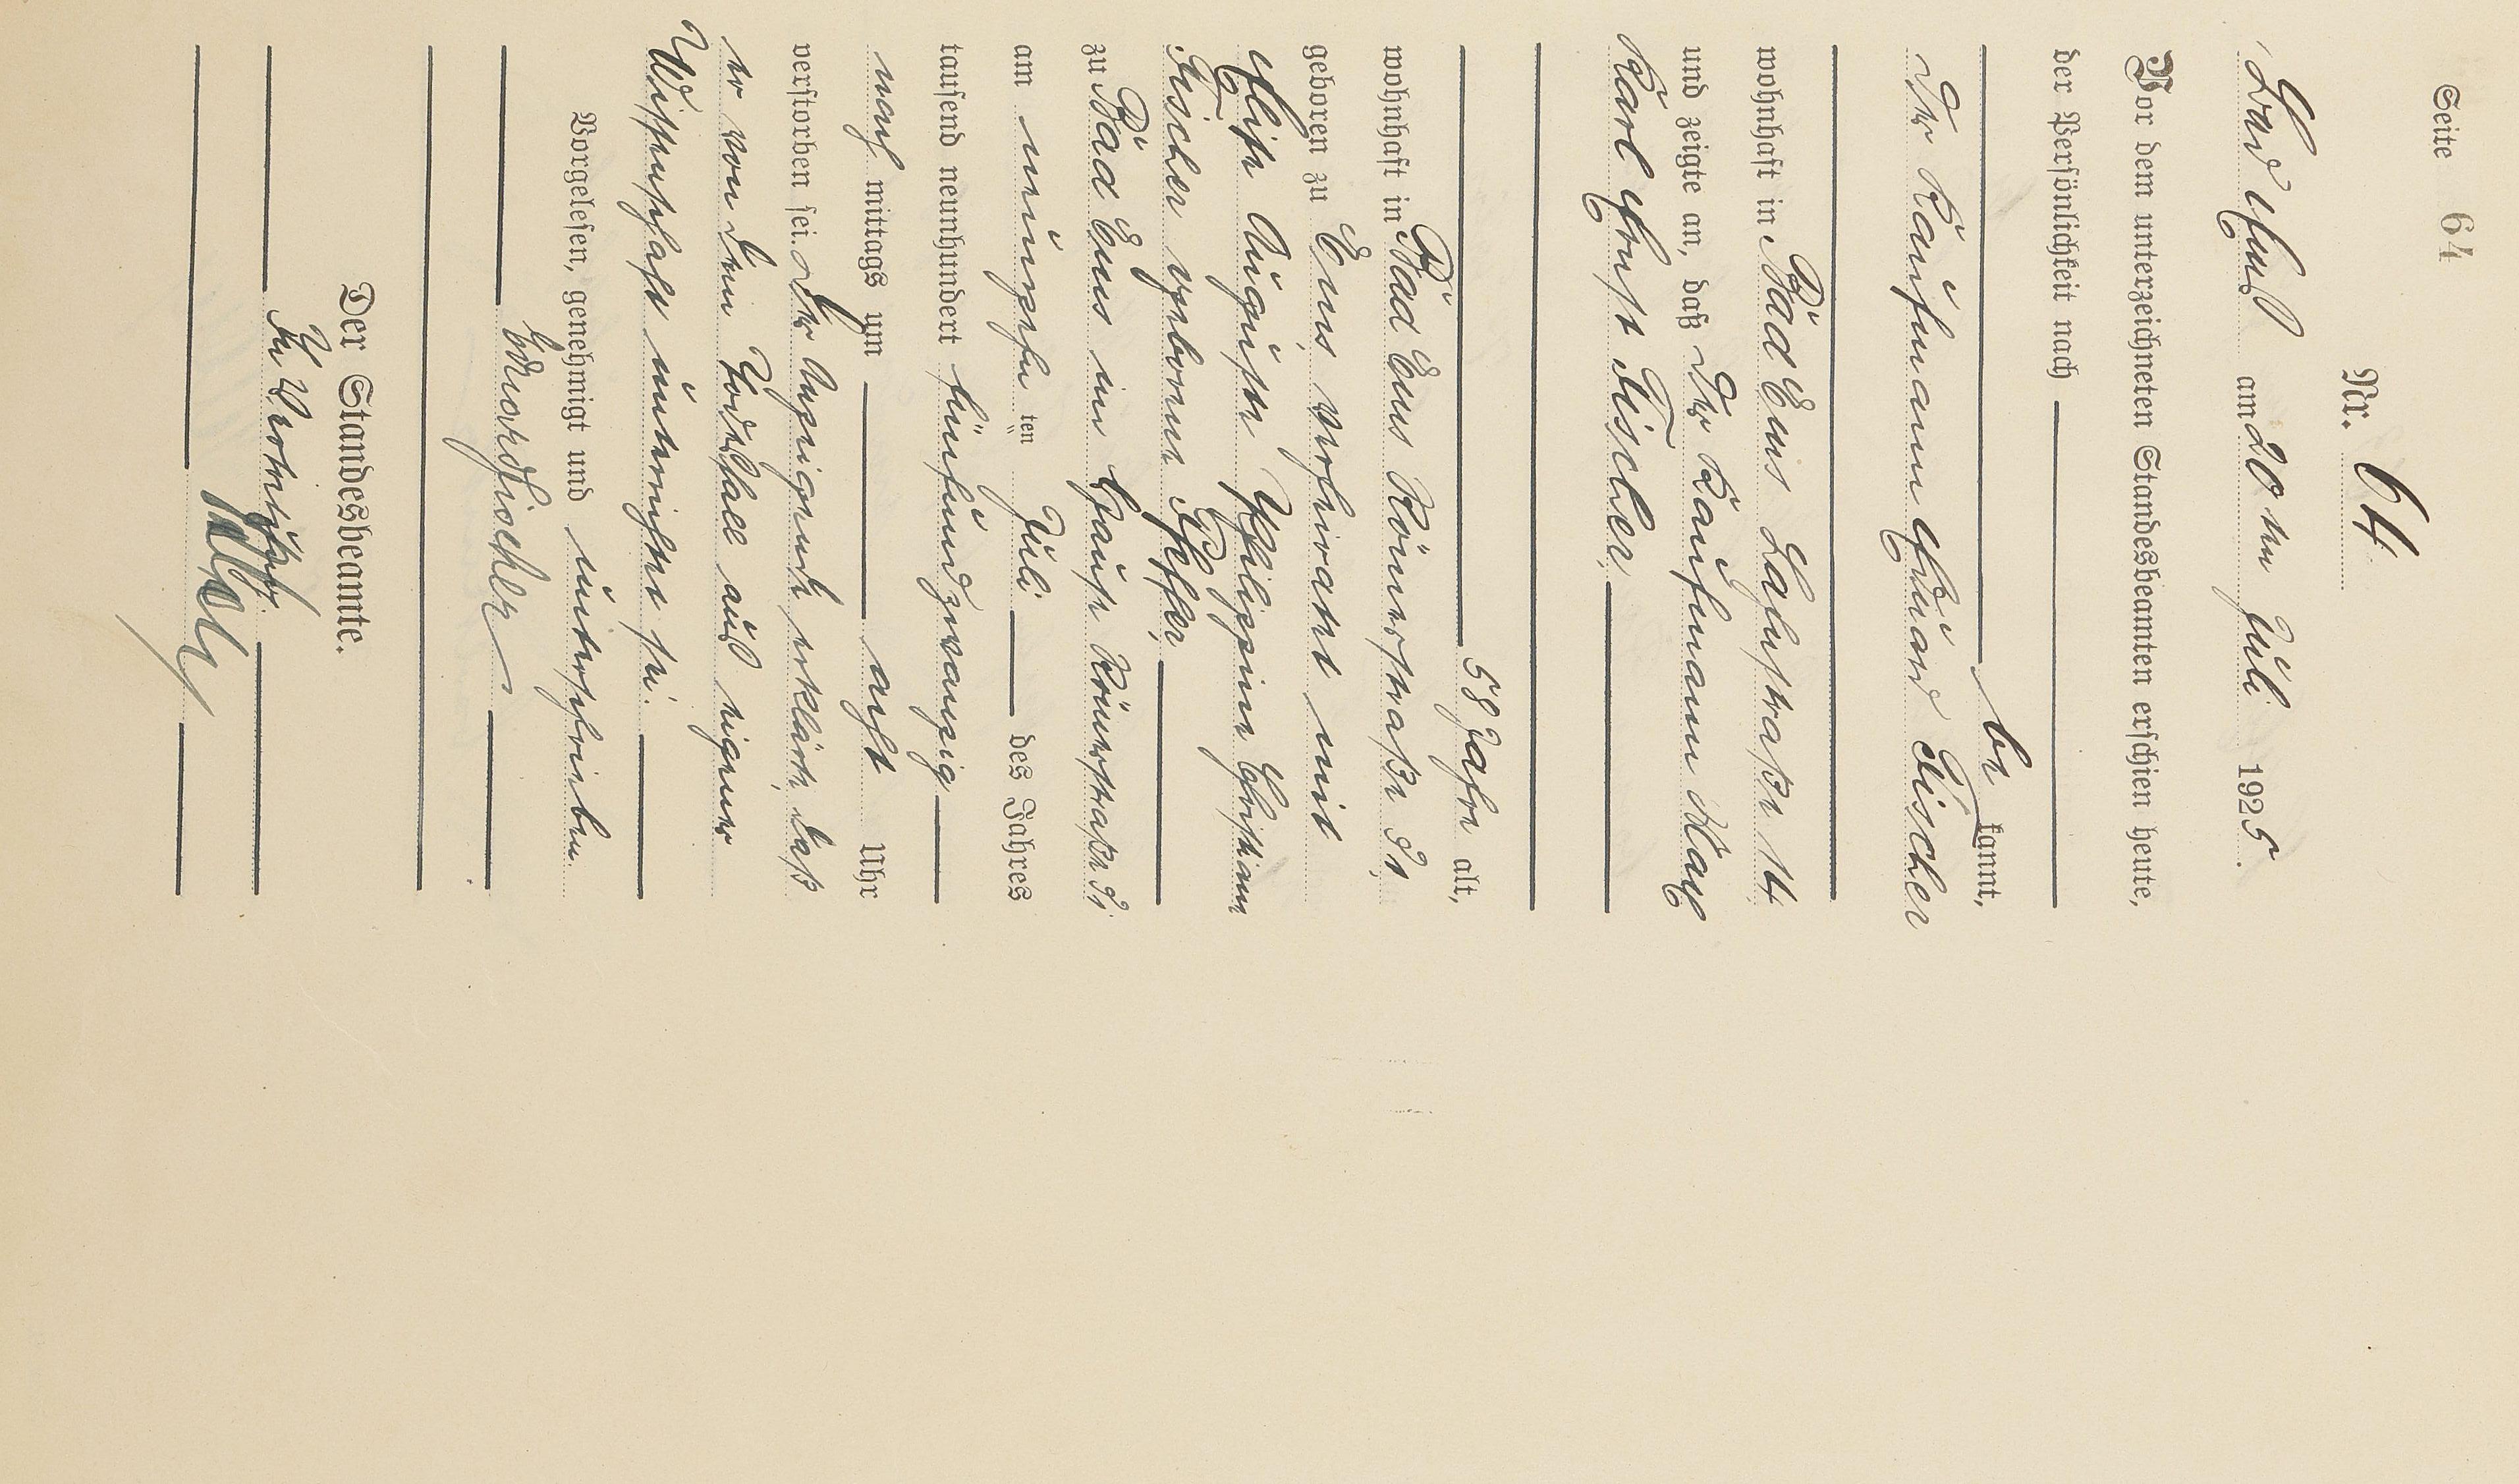 Seite 64
Nr. 64.
Bad Ems am 20ten Juli 1925.
Vor dem unterzeichneten Standesbeamten erschien heute,
der Persönlichkeit nach
bekannt,
der Kaufmann Eduard Fischer
wohnhaft in Bad Ems Lahnstraße 14
und zeigte an, daß der Kaufmann Max
Karl Ernst Fischer,
58 Jahre alt,
wohnhaft in Bad Ems Römerstraße 91,
geboren zu Ems, verheiratet mit
Elise Auguste Philippine Christiane
Fischer geborene Pfeffer,
zu Bad Ems im Hause Römerstraße 91
am neunzehn ten Juli des Jahres
tausend neunhundert fünfundzwanzig
nach mittags um acht Uhr
verstorben sei. Der Anzeigende erklärte, daß
er von dem Todesfall aus eigener
Wissenschaft unterrichtet sei.
Vorgelesen, genehmigt und unterschrieben.
Eduard Fischer
Der Standesbeamte.
In Vertretung.